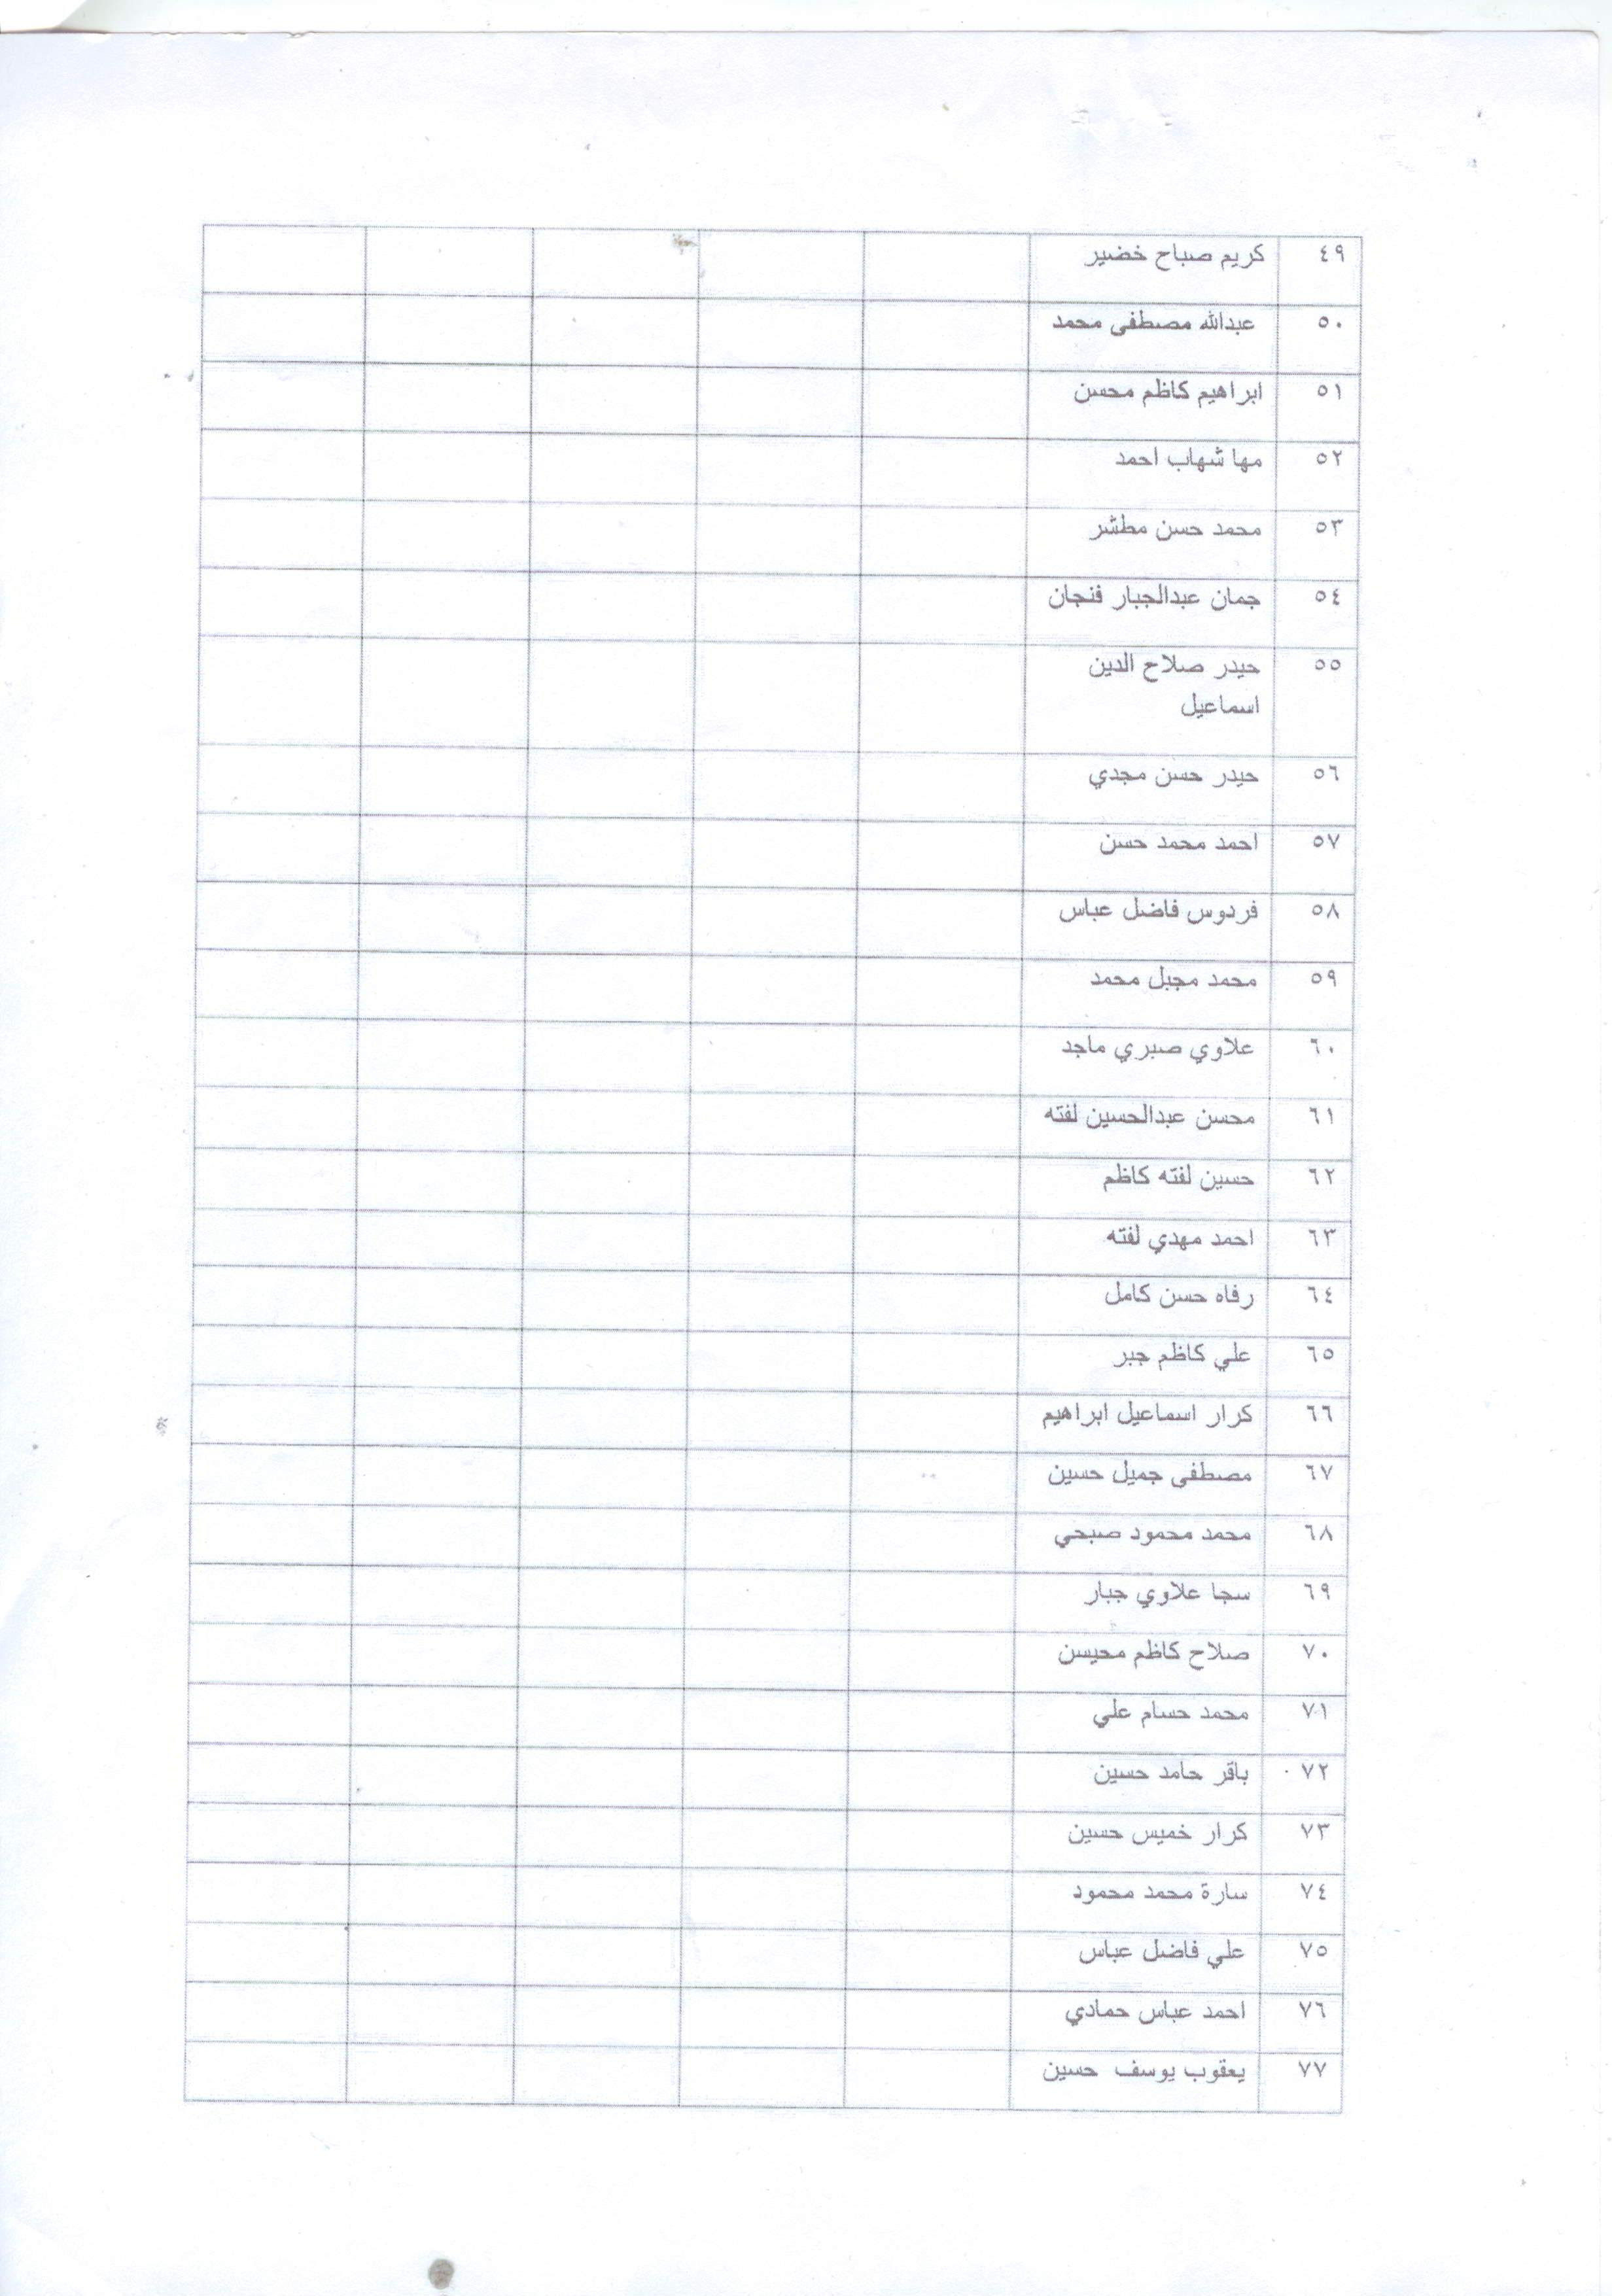 ٤٩ كريم صباح خضير
٥٠ عبدالله مصطفى محمد
٥١ ابراهيم كاظم محسن
٥٢ مها شهاب احمد
٥٣ محمد حسن مطشر
٥٤ جمان عبدالجبار فنجان
٥٥ حيدر صلاح الدين
اسماعيل
٥٦ حيدر حسن مجدي
٥٧ احمد محمد حسن
٥٨ فردوس فاضل عباس
٥٩ محمد مجبل محمد
٦٠ علاوي صبري ماجد
٦١ محسن عبدالحسين لفته
٦٢ حسين لفته كاظم
٦٣ احمد مهدي لفته
٦٤ رفاه حسن كامل
٦٥ علي كاظم جبر
٦٦ كرار اسماعيل ابراهيم
٦٧ مصطفى جميل حسين
٦٨ محمد محمود صبحي
٦٩ سجا علاوي جبار
٧٠ صلاح كاظم محيسن
٧١ محمد حسام علي
٧٢ باقر حامد حسين
٧٣ كرار خميس حسين
٧٤ سارة محمد محمود
٧٥ علي فاضل عباس
٧٦ احمد عباس حمادي
٧٧ يعقوب يوسف حسين